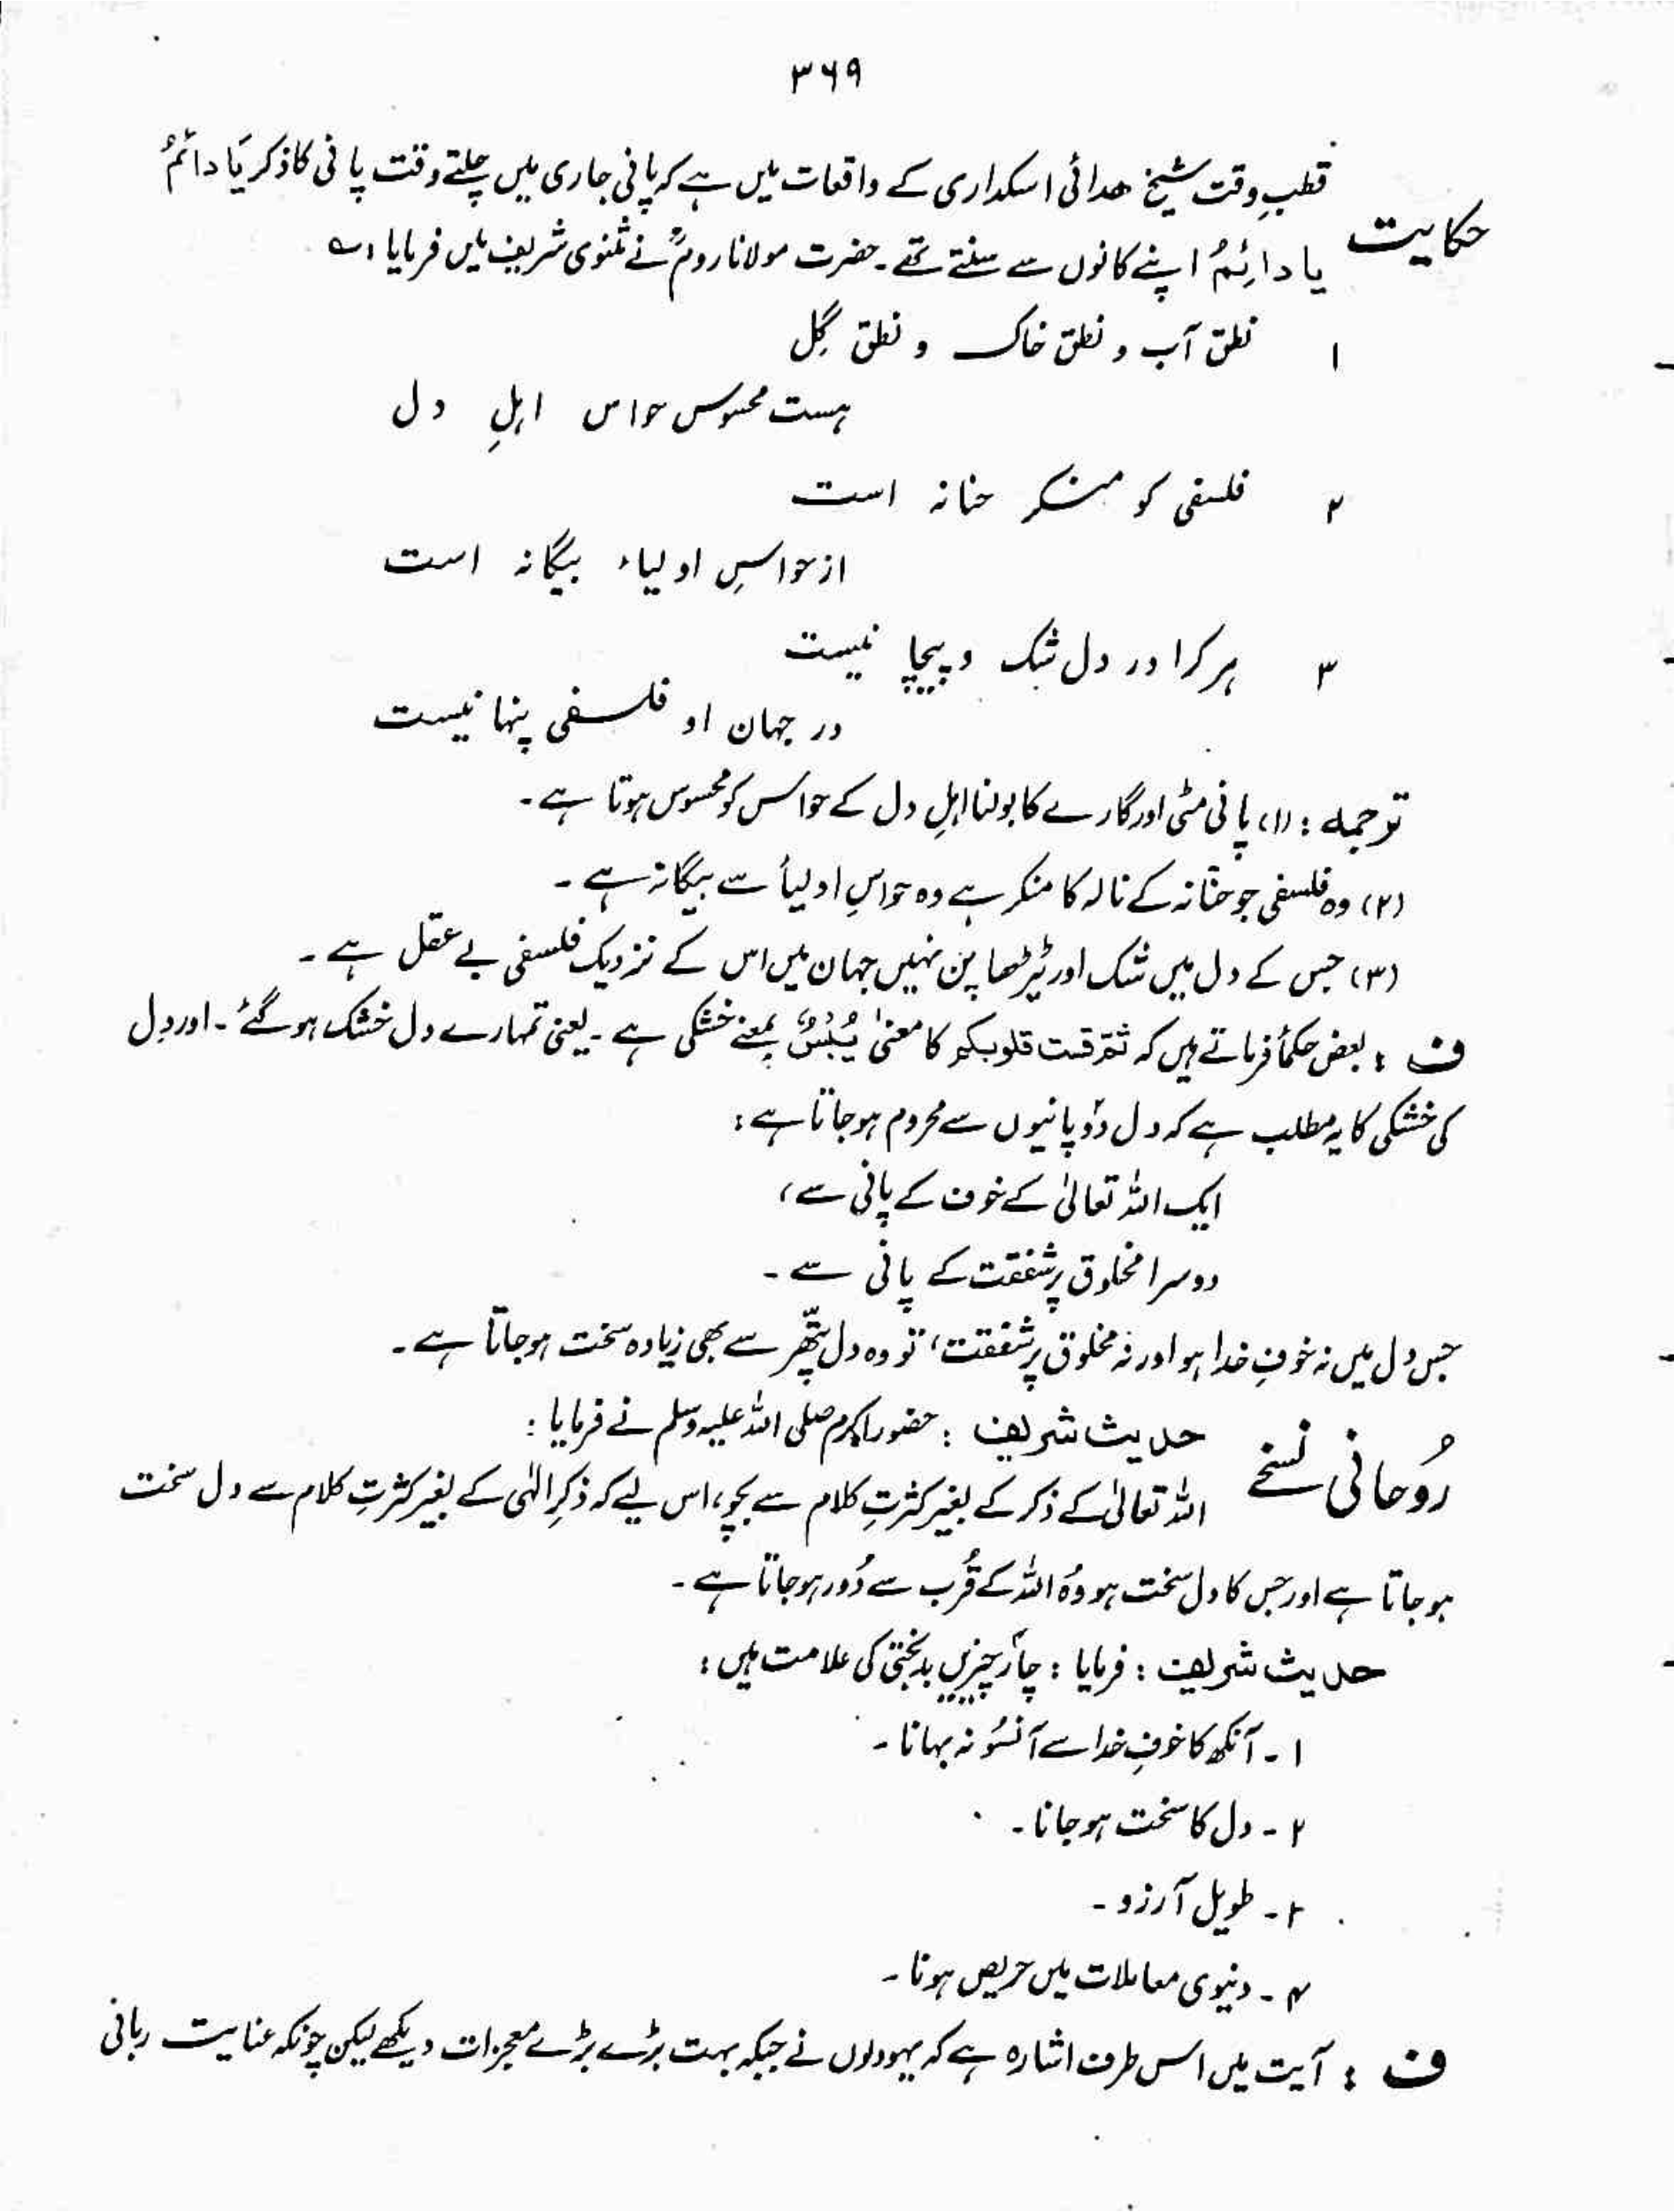 ۳۶۹
قطبِ وقت شیخ ھدائی اسکداری کے واقعات میں ہے کہ پانی جاری میں چلتے وقت پانی کا ذکر یَا دائمُ
حکایت
یا دائِمُ اپنے کانوں سے سنتے تھے۔ حضرت مولانا رومؒ نے مثنوی شریف میں فرمایا ؎
۱ نطق آب و نطق خاک و نطق گِل
ہست محسوس حواس اہلِ دل
۲ فلسفی کو منکر حنانہ است
از حواسِ اولیاء بیگانہ است
۳ ہر کرا در دل شک و پیچا نیست
در جہان او فلسفی پنہا نیست
ترجمہ : (۱) پانی مٹی اور گارے کا بولنا اہلِ دل کے حواس کو محسوس ہوتا ہے۔
(۲) وہ فلسفی جو حنّانہ کے نالہ کا منکر ہے وہ حواسِ اولیأ سے بیگانہ ہے۔
(۳) جس کے دل میں شک اور ٹیڑھا پن نہیں جہان میں اس کے نزدیک فلسفی بے عقل ہے۔
ف : بعض حکمأ فرماتے ہیں کہ ثمّ قست قلوبکم کا معنیٰ یُبُسٌ بمعنے خشکی ہے۔ یعنی تمہارے دل خشک ہو گئے۔ اور دل
کی خشکی کا یہ مطلب ہے کہ دل دوؔ پانیوں سے محروم ہو جاتا ہے :
ایک اللہ تعالیٰ کے خوف کے پانی سے،
دوسرا مخلوق پر شفقت کے پانی سے۔
جس دل میں نہ خوفِ خدا ہو اور نہ مخلوق پر شفقت، تو وہ دل پتّھر سے بھی زیادہ سخت ہو جاتا ہے۔
حدیث شریف : حضور اکرم صلی اللہ علیہ وسلم نے فرمایا :
رُوحانی نسخے
اللہ تعالیٰ کے ذکر کے بغیر کثرتِ کلام سے بچو، اس لیے کہ ذکرِ الٰہی کے بغیر کثرتِ کلام سے دل سخت
ہو جاتا ہے اور جس کا دل سخت ہو وُہ اللہ کے قُرب سے دُور ہو جاتا ہے۔
حدیث شریف : فرمایا : چارؔ چیزیں بدبختی کی علامت ہیں :
۱ - آنکھ کا خوفِ خدا سے آنسُو نہ بہانا۔
۲ - دل کا سخت ہو جانا۔
۳ - طویل آرزو۔
۴ - دنیوی معاملات میں حریص ہونا۔
ف : آیت میں اس طرف اشارہ ہے کہ یہودیوں نے جبکہ بہت بڑے بڑے معجزات دیکھے لیکن چونکہ عنایت ربانی